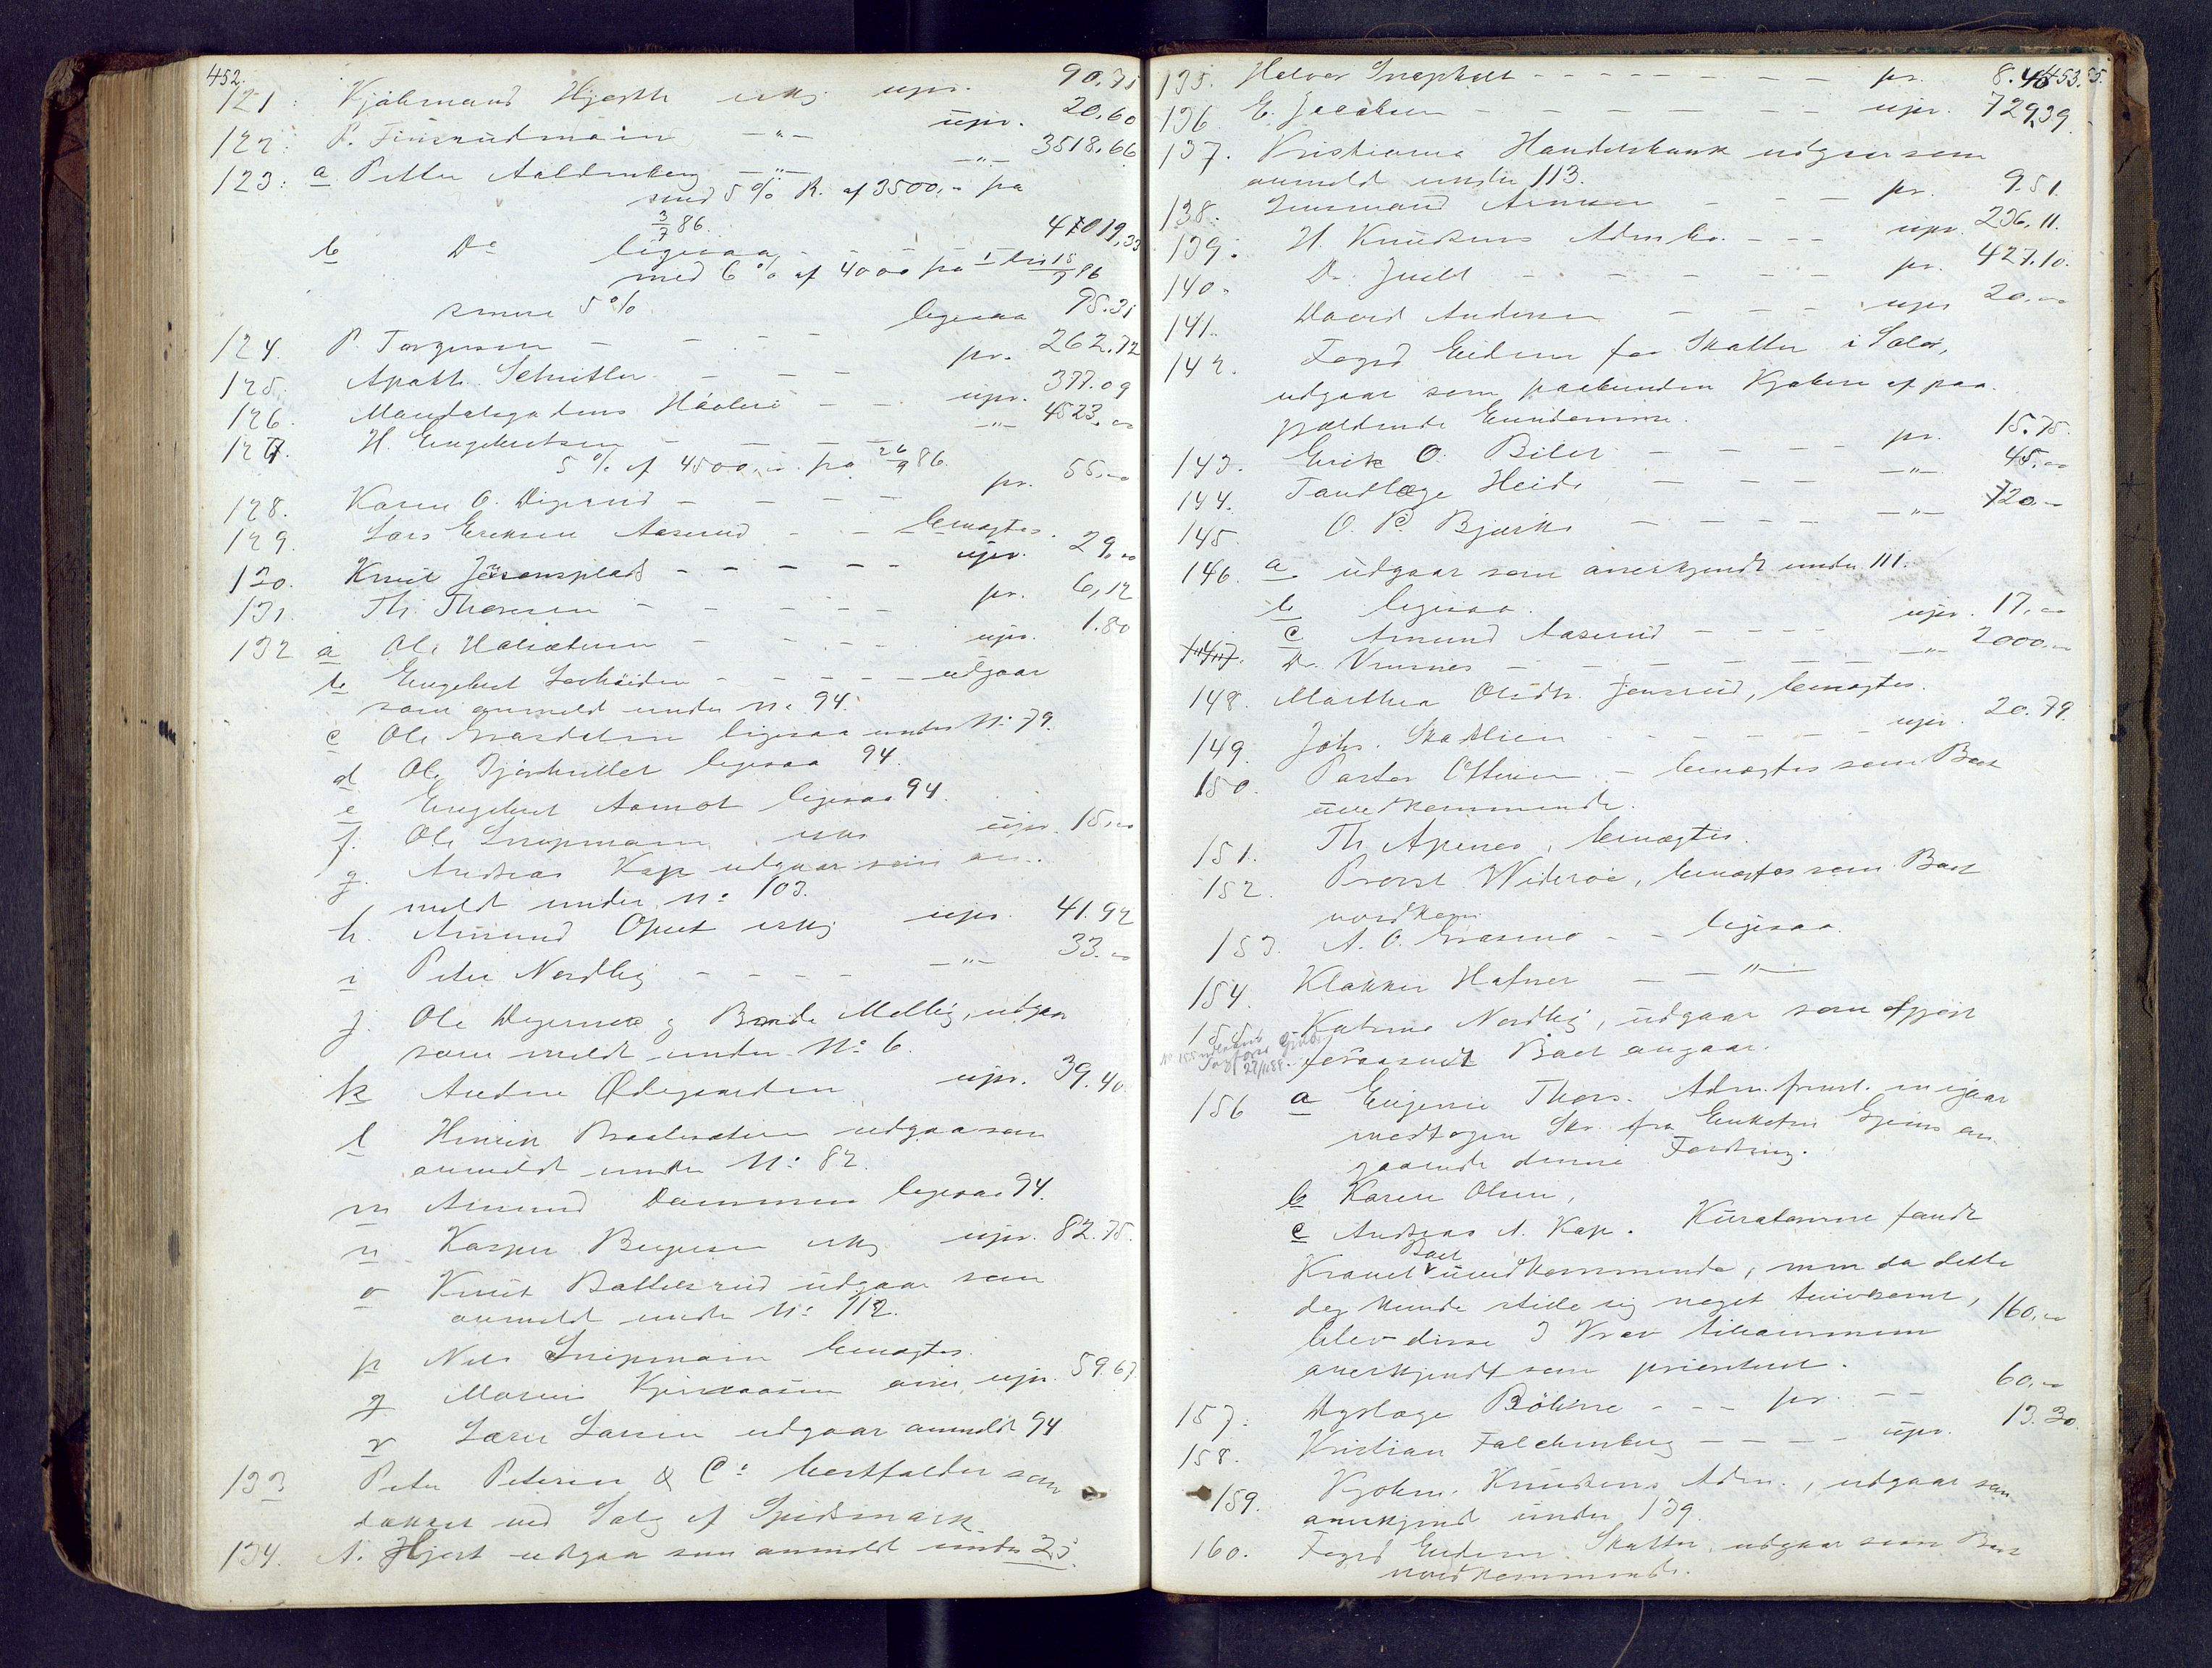 452.
121: Kjøbmand Hjorth erkj upr. 90.75
122: P. Finsrudmoin -"- upr. 20,60
123: a Petter Aaldenberg -"- -"- 3518.66
med 5% R. af 3500,- fra
3/7 86.
b Do ligesaa - - - 4019,33
med 6% af 4000 fra 1/1 til 15/7 86
senere 5%
124. P. Torgersen - - - ligesaa 95.31
125. Apoth. Schntler - - - pr. 262.72
126. Mandalsgadens Høvleri - - upr. 377.09
127. H. Engebretsen - - - -"- 4523.00
5% af 4500,- fra 26/9 86.
128. Karen O. Digerud - - - - pr. 55,00
129. Lars Eriksen Aaserud - - - benegtes.
130. Knut Jensensplads - - - - - upr. 29,00
131. Th. Thoresen - - - - pr. 6,12
132 a Ole Halsæteren - - - - upr. 1.80
b Engebret Løvhøiden - - - - - udgaar
som anmeldt under No 94.
c Ole Grasdalen ligesaa under No 79.
d Ole Bjørkullet ligesaa 94.
e Engebret Aamot ligesaa 94.
f. Ole Snipmoen erkj upr. 15,00
g. Andreas Kap udgaar som an-
meldt under No 103.
h. Amund Opset erkj upr. 41.92
i Peter Nordby - - - - -"- 33.00
j. Ole Degernes g Brede Melby, udgaar
som meldt under No 6.
k Andrea Ødegaarden upr. 39.40
l Henrik Braatesæteren udgaar som
anmeldt under No 82.
m Amund Dammen ligesaa 94.
n Kasper Bergersen erkj upr. 82.75.
o Knut Battelsrud udgaar som
anmeldt under No 112.
p Nils Snipmoin benegtes.
q Maren Kjernaasen aner. upr. 59.67
r Lars Larsen udgaar anmeldt 94
133 Peter Petersen & Co bortfalder som
dækket ved Salg af Spidsmark.
134. A. Hjort udgaar som anmeldt under 23.
453.
135. Halvor Snepholt - - - - - - - pr. 8.45
136 E. Jacobsen - - - - - - upr. 729,39.
137. Kristiania Handelsbank udgaar som
anmeldt under 113.
138. Lensmand Arnesen - - - pr. 9.51.
139. H. Knudsens Adm. Co. - - - upr. 236.11.
140. Dr. Juell - - - - - - pr. 427.10.
141. David Andersen - - - upr 20.00
142. Foged Eidem for Skatter i Solør,
udgaar som paahvilende Kjøberen af paa-
gjældende Eiendomme.
143. Erik O. Bilet - - - - - pr. 15.75.
144. Tandlæge Heide - - - - -"- 45.00
145. O. P. Bjørke - - - - -"- 720.-
146. a udgaar som anerkjendt under 111.
b ligesaa.
c Amund Aaserud - - - - upr. 17,00
147. Dr. Vensnes - - - - - - -"- 2000,00
148. Marthea Olsdtr. Jensrud, benegtes.
149. Johs. Skadlien - - - - - - upr. 20.79.
150. Pastor Ottesen - benegtes som Boet
uvedkommende.
151. Th. Apenes, benegtes.
152. Provst Widerøe, benegtes som Boet
uvedkom.
153. A. O. Grasmo - - ligesaa.
154. Klokker Hafner - - "-
155. Katrine Nordby, udgaar som afgjort
forsaavidt Boet angaar.
27/11 88.
156 a Eugenie Thors. Adm. freml. en igaar
modtagen Skr. fra Enkefru Gjems an-
gaaende denne Fordring.
b Karen Olsen,
c Andreas A. Kap. Kuratorerne fandt
Kravet Boet uvedkommende, men da dette
dog kunde stille sig noget tvivlsomt,
blev disse 3 Krav tilsammen 160,00
anerkjendt som prioriteret.
157. Dyrlæge Böhme - - - pr. - - 60,00
158. Kristian Falchenberg - - - - - upr. 13.30
159. Kjøbm. Knudsens Adm., udgaar som
anerkjendt under 139.
160. Foged Eidem Skatter, udgaar som Boet
uvedkommende.